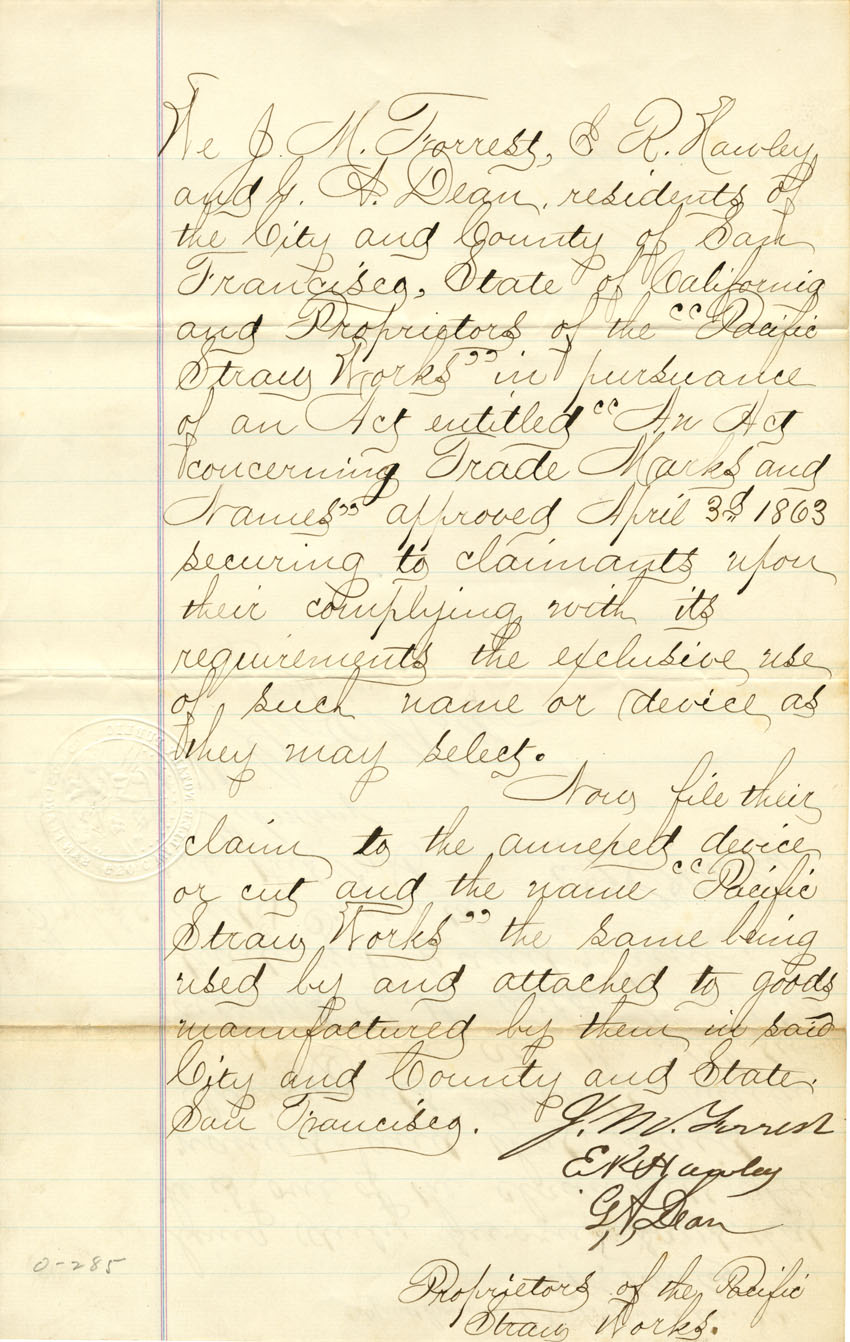 We J. M. Forrest, E R. Hawley
and G. A. Dean, residents of
the City and County of San
Francisco, State of California
and Proprietors of the "Pacific
Straw Works" in pursuance
of an Act entitled "An Act
concerning Trade Marks and
Names" approved April 3d 1863
securing to claimants upon
their complying with its
requirements the exclusive use
of such name or device as
they may select.
Now file their
claim to the annexed device
or cut and the name "Pacific
Straw Works" the same being
used by and attached to goods
manufactured by them in said
City and County and State.
San Francisco. J. M. Forrest
E R Hawley
G A Dean
0-285
Proprietors of the Pacific
Straw Works.